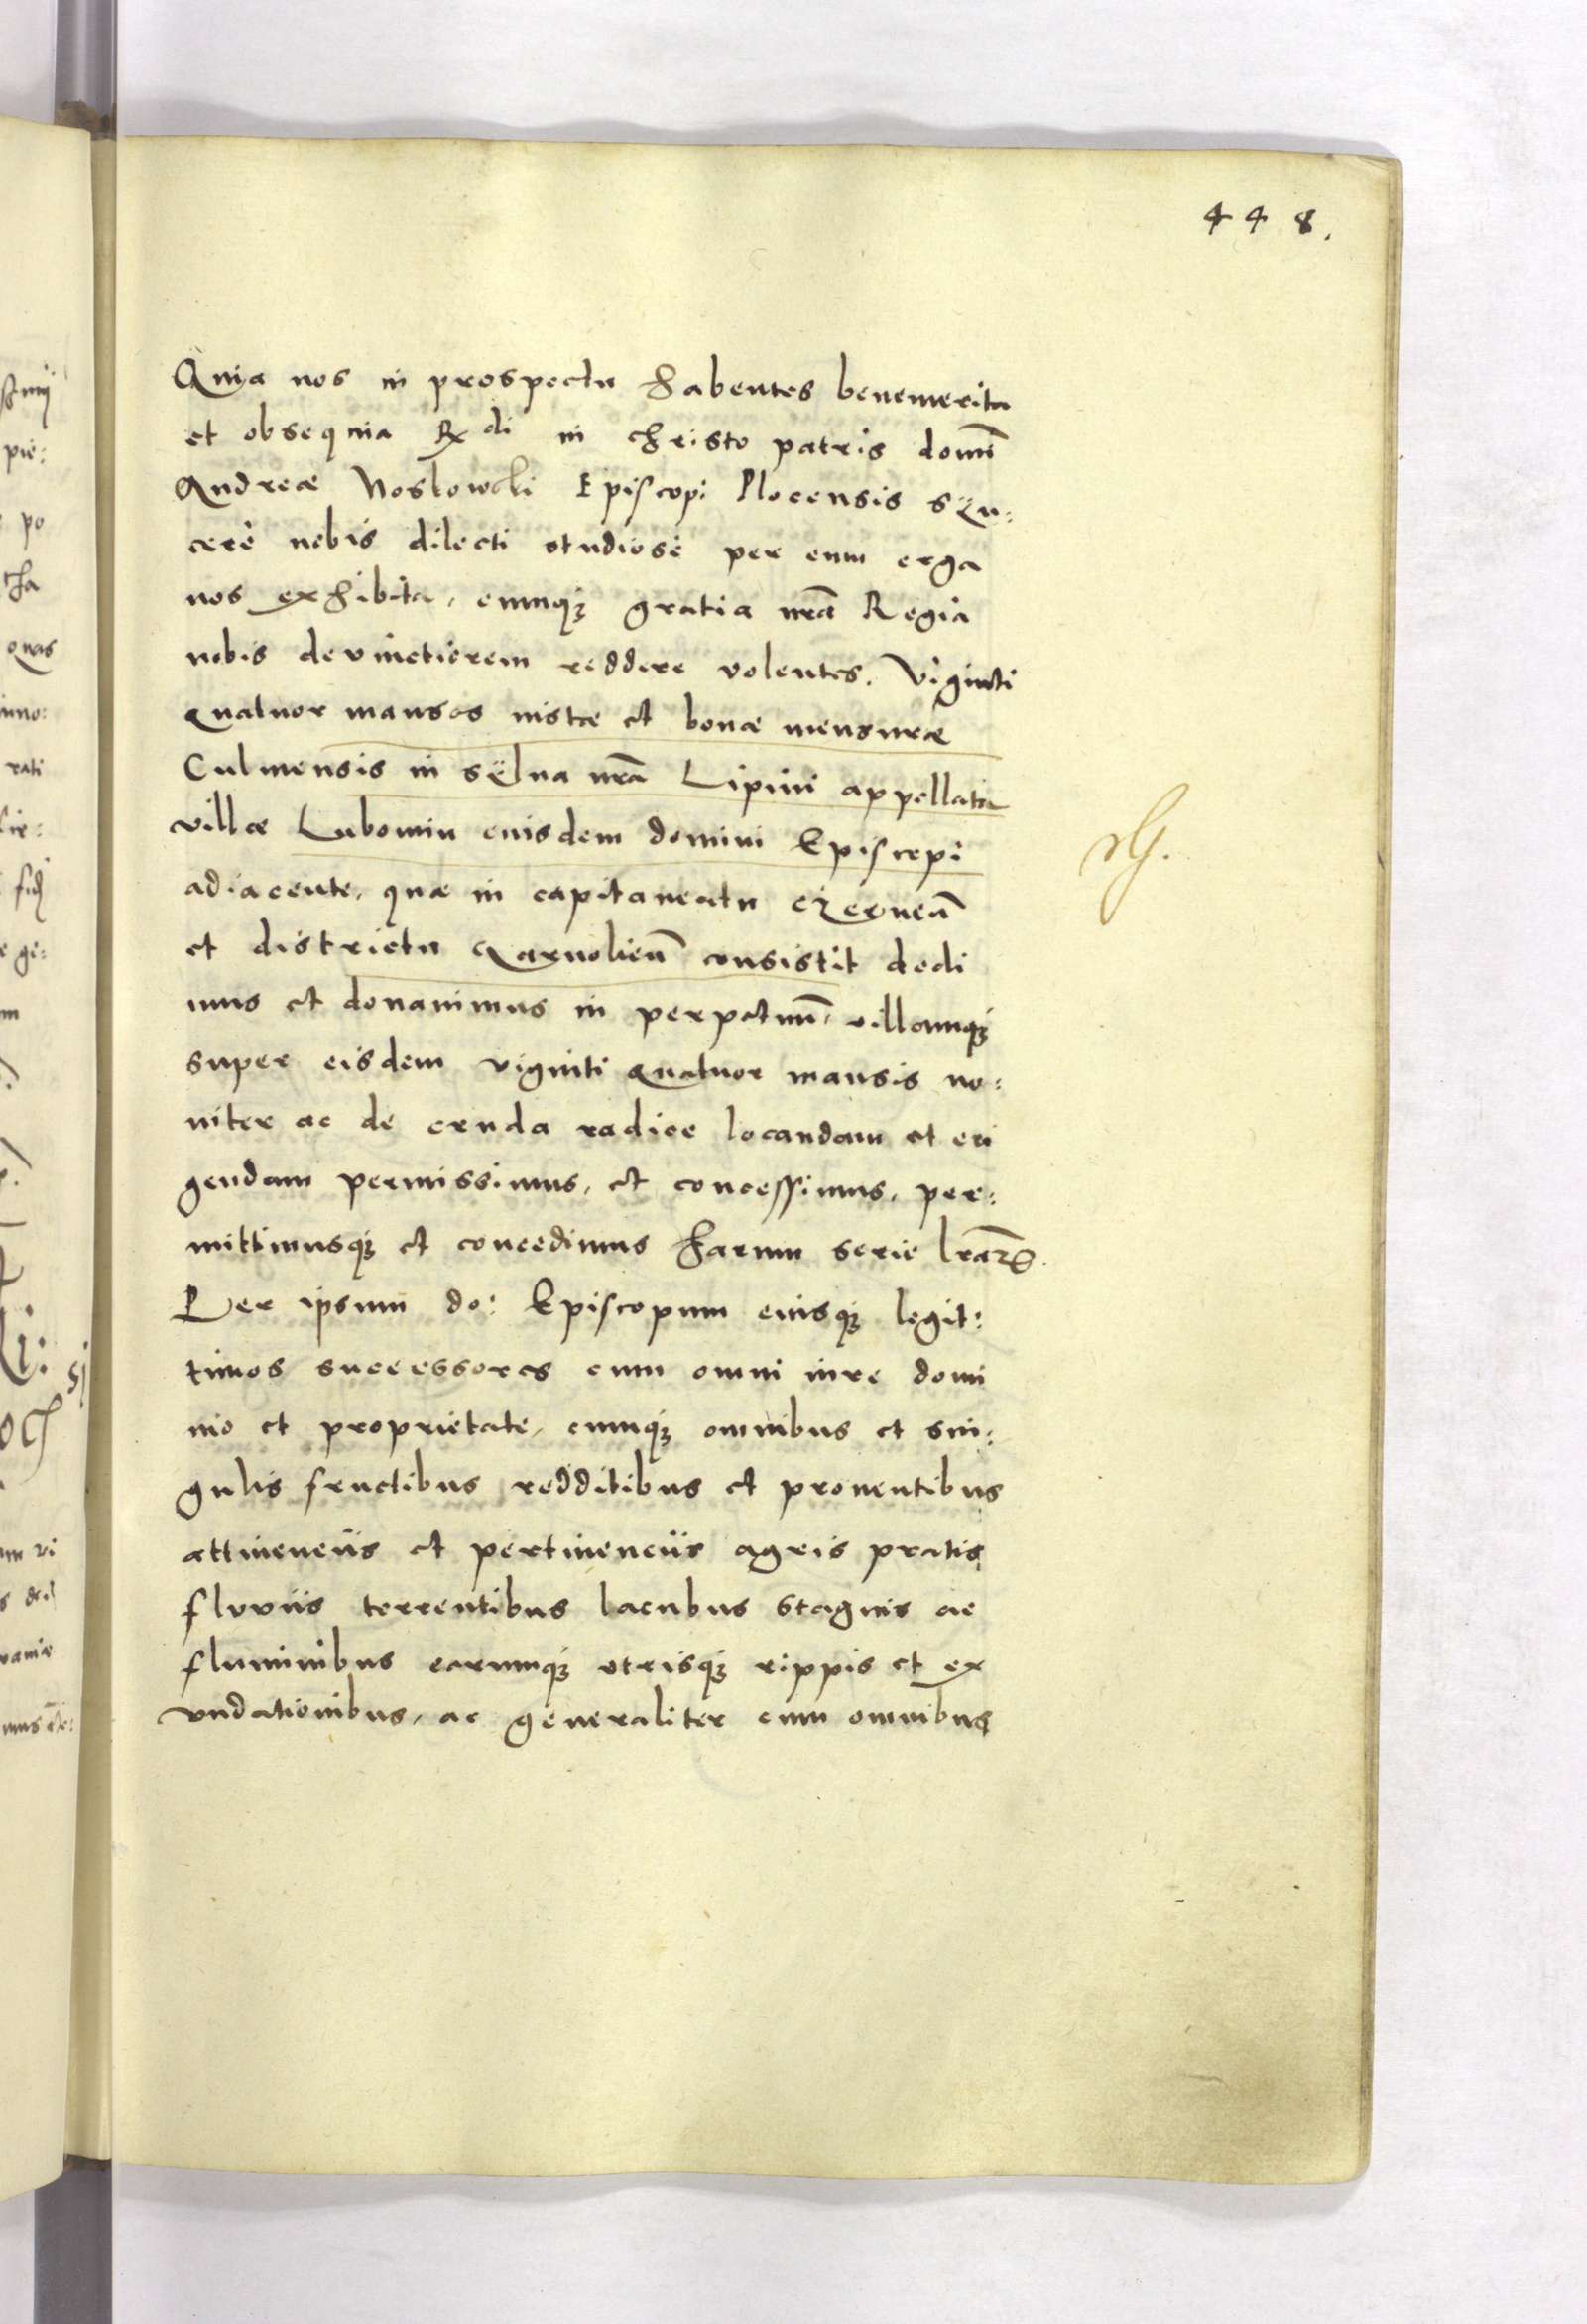 448.
Quia nos in prospectu habentes benemerita
et obsequia Rdi in christo patris domĩ
Andreæ Noskowski Episcopi Plocensis syn:
cerè nobis dilecti studiosè per eum erga
nos exhibita, eumq; gratia nrã Regia
nobis devinctiorem reddere volentes. Viginti
quatuor mansos iustæ et bonæ mensuræ
Culmensis in sÿlua nrã Lipini appellata
villæ Lubomin eiusdem domini Episcopi
adiacente, quæ in capitaneatu
et districtu consistit dedi
mus et donauimus in perpetuũ, villamq;
super eisdem viginti quatuor mansis no:
uiter ac de cruda radice locandam et eri
gendam permissimus, et concessimus, per:
mittimusq; et concedimus harum serie lrãrũ.
Per ipsum do: Episcopum eiusq; legit:
timos successores cum omni iure domi
nio et proprietate, cumq; omnibus et sin:
gulis fructibus redditibus et prouentibus
attinenciis et pertinenciis agris pratis
fluviis torrentibus lacubus stagnis ac
fluminibus earumq; utrisq; rippis et ex
vndationibus, ac generaliter cum omnibus